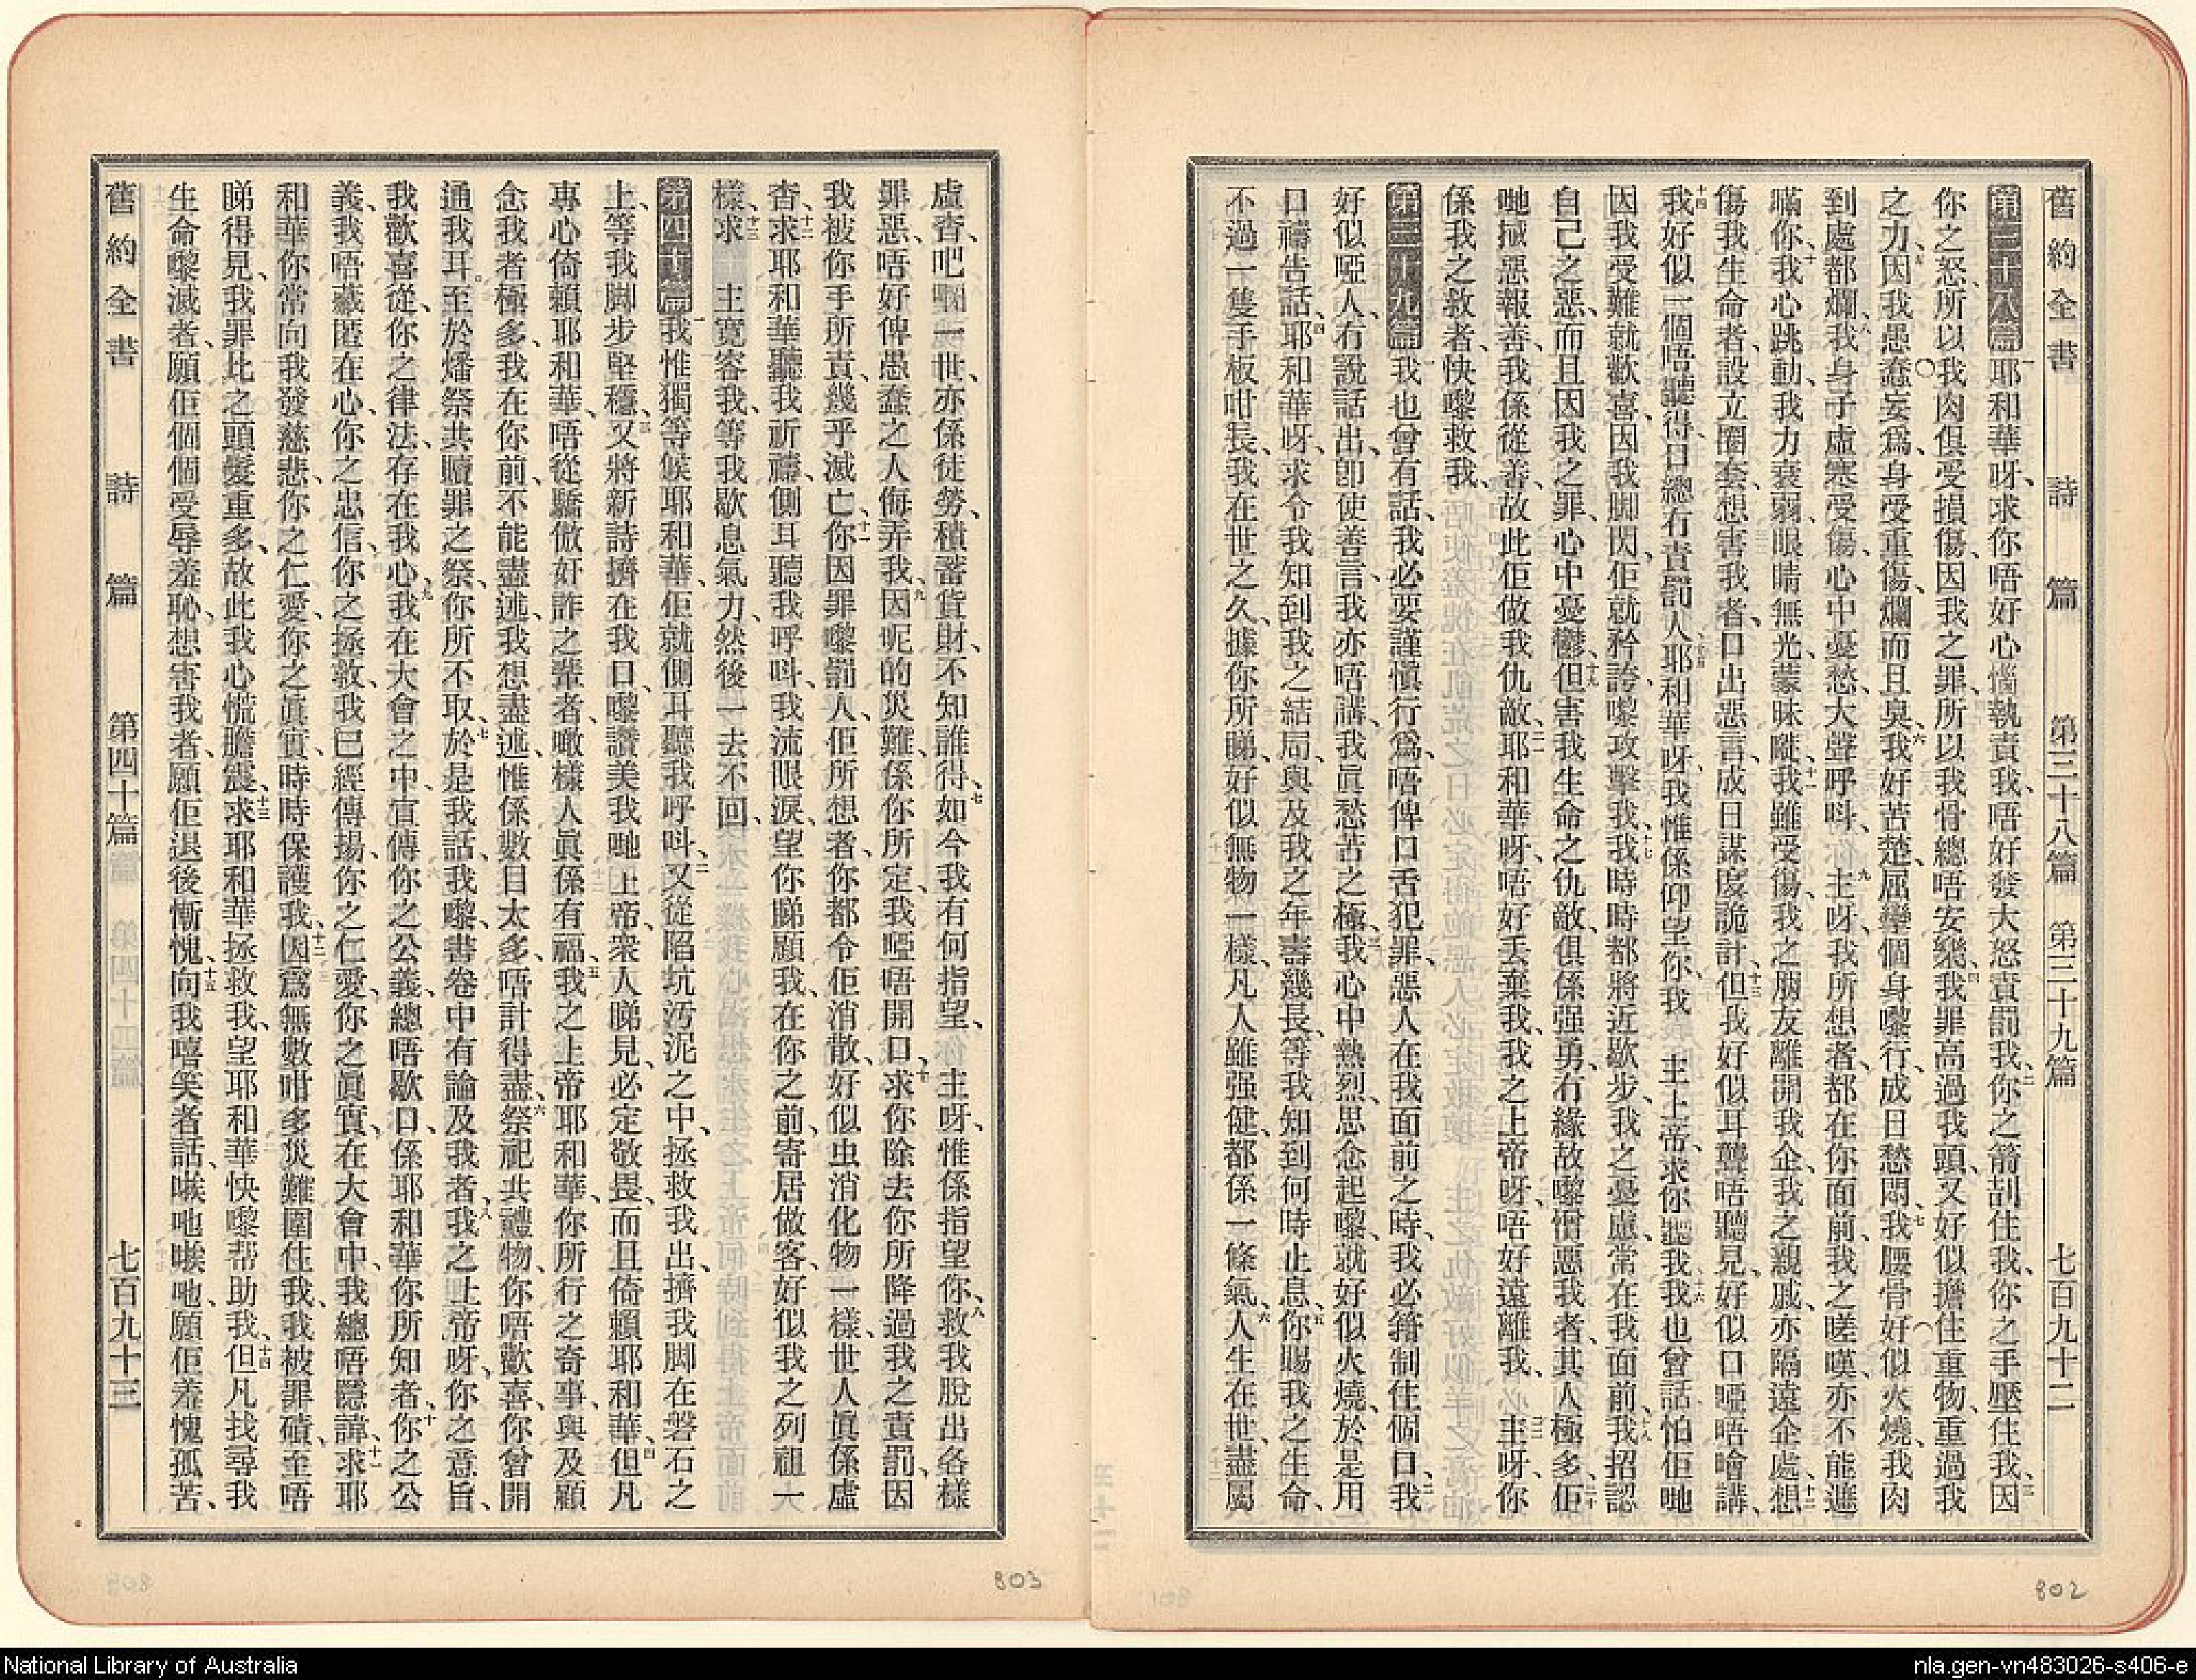 舊約全書 詩篇 第三十八篇 第三十九篇 七百九十二
第三十八篇 一耶和華呀、求你唔好心惱執責我、唔好發大怒責罰我、二你之箭刮住我、你之手壓住我、三因
你之怒、所以我肉俱受損傷、因我之罪、所以我骨總唔安樂、四我罪高過我頭、又好似擔住重物、重過我
之力、五因我愚蠢妄爲、身受重傷、爛而且臭、六我好苦楚、屈攣個身嚟行、成日愁悶、七我腰骨好似火燒、我肉
到處都爛、八我身子虛寒受傷、心中憂愁、大聲呼呌、九主呀、我所想者、都在你面前、我之嗟嘆、亦不能遮
瞞你、十我心跳動、我力衰弱、眼睛無光、蒙昧嘥、十一我雖受傷、我之朋友離開我企、我之親戚、亦隔遠企處、十二想
傷我生命者、設立圈套、想害我者、口出惡言、成日謀度詭計、十三但我好似耳聾唔聽見、好似口啞唔噲講、
十四我好似一個唔聽得、口總冇責罰人、十五耶和華呀、我惟係仰望你、我 主上帝、求你聽我、十六我也曾話、怕佢哋
因我受難就歡喜、因我脚閃、佢就矜誇嚟攻擊我、十七我時時都將近歇步、我之憂慮、常在我面前、十八我招認
自己之惡、而且因我之罪、心中憂鬱、十九但害我生命之仇敵、俱係强勇、冇緣故嚟憎惡我者、其人極多、二十佢
哋擸惡報善、我係從善、故此佢做我仇敵、二一耶和華呀、唔好丟棄我、我之上帝呀、唔好遠離我、二二 主呀、你
係我之救者、快嚟救我、
第三十九篇 一我也曾有話、我必要謹愼行爲、唔俾口舌犯罪、惡人在我面前之時、我必籍制住個口、二我
好似啞人、冇說話出、卽使善言、我亦唔講、我眞愁苦之極、三我心中熱烈、思念起嚟、就好似火燒、於是用
口禱告話、四耶和華呀、求令我知到我之結局、與及我之年壽幾長、等我知到何時止息、五你賜我之生命、
不過一隻手板咁長、我在世之久、據你所睇、好似無物一樣、凡人雖强健、都係一條氣、六人生在世、盡屬
虛杳、吧嘞一世、亦係徒勞、積蓄貨財、不知誰得、七如今我有何指望、 主呀、惟係指望你、八救我脫出各樣
罪惡、唔好俾愚蠢之人侮弄我、九因呢的災難、係你所定、我啞唔開口、十求你除去你所降過我之責罰、因
我被你手所責、幾乎滅亡、十一你因罪嚟罰人、佢所想者、你都令佢消散、好似虫消化物一樣、世人眞係虛
杳、十二求耶和華聽我祈禱、側耳聽我呼呌、我流眼淚、望你睇顧、我在你之前、寄居做客、好似我之列祖一
樣、十三求 主寬容我、等我歇息氣力、然後一去不回、
第四十篇 一我惟獨等候耶和華、佢就側耳聽我呼呌、二又從陷坑汚泥之中、拯救我出、擠我脚在磐石之
上、等我脚步堅穩、三又將新詩擠在我口、嚟讚美我哋上帝、衆人睇見、必定敬畏、而且倚賴耶和華、四但凡
專心倚賴耶和華、唔從驕傲奸詐之輩者、噉樣人眞係有福、五我之上帝耶和華、你所行之奇事、與及顧
念我者極多、我在你前、不能盡述、我想盡述、惟係數目太多、唔計得盡、六祭祀共禮物、你唔歡喜、你曾開
通我耳、至於燔祭共贖罪之祭、你所不取、七於是我話、我嚟、書卷中有論及我者、八我之上帝呀、你之意旨、
我歡喜從、你之律法、存在我心、九我在大會之中、宣傳你之公義、總唔歇口、係耶和華你所知者、十你之公
義、我唔藏匿在心、你之忠信、你之拯救、我已經傳揚、你之仁愛、你之眞實、在大會中、我總唔隱諱、十一求耶
和華你常向我發慈悲、你之仁愛、你之眞實、時時保護我、十二因爲無數咁多災難圍住我、我被罪磧、至唔
睇得見、我罪比之頭髮重多、故此我心慌膽震、十三求耶和華拯救我、望耶和華快嚟帮助我、十四但凡找尋我
生命嚟滅者、願佢個個受辱羞恥、想害我者、願佢退後慚愧、十五向我嘻笑者話、㗾吔㗾吔、願佢羞愧孤苦、
舊約全書 詩篇 第四十篇 七百九十三
803
802
National Library of Australia
nla.gen-vn483026-s406-e